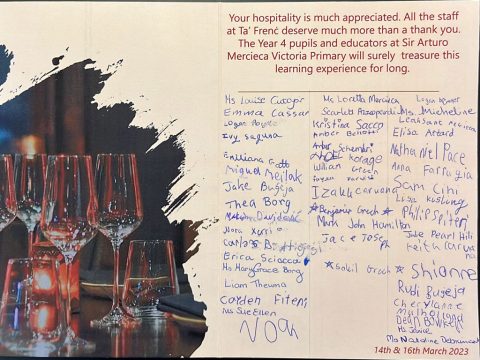 Your hospitality is much appreciated. All the staff
at Ta' Frenċ deserve much more than a thank you.
The Year 4 pupils and educators at Sir Arturo
Mercieca Victoria Primary will surely treasure this
learning experience for long.
Ms Louise Cutajar
Emma Cassar
Ivy Saguna
Emiliana Grotti
Miguel Mejlak
Jake Bugeja
Thea Borg
Davidović
Nora Xerri
Carlos Battigiesi
Erica Sciasco
Ms MaryGrace Borg
Liam Theuma
Cayden Fiteni
Ms SueEllen
Noah
Ms Loretta Mercieca
Scarlett
Kristina Sacco
Amber
Schembri
William Green
Izaak Caruana
Benjamin Grech
Mark John Hamilton
Jace
Sohil Grech
Logan
Ms Micheline
Elisa Attard
Nathaniel Pace
Anna Farrugia
Sam Cini
Philip Spiteri
Jake Pearl Hili
Keith Caruana
Shianne
Rudi Bugeja
Cherylanne
Mulholland
Dean Bowkey
Ms Janice
Ms Nadeline
14th & 16th March 2023